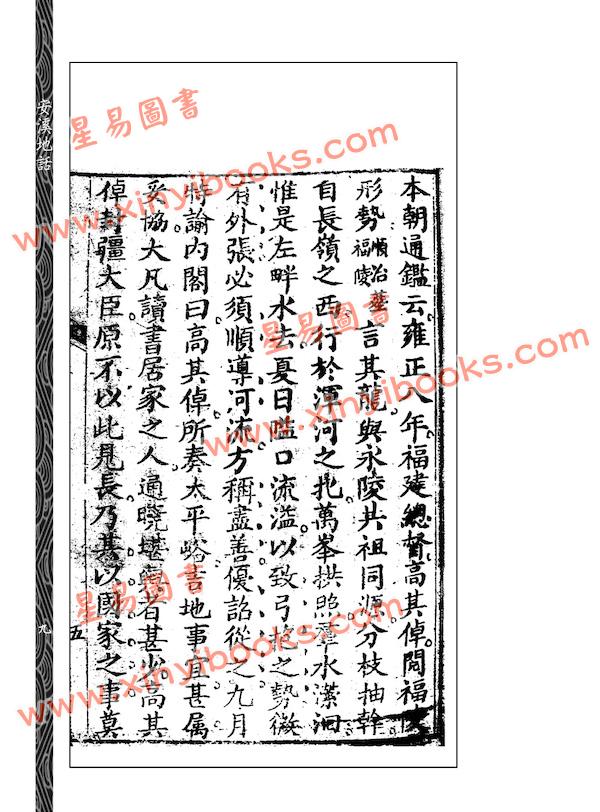 本朝通鑑云雍正八年福建總督高其倬閱福陵
形勢順治福陵塟言其龍與永陵共祖同源分枝抽幹
自長嶺之西行於渾河之北萬峯拱照羣水瀠洄
惟是左畔水去夏日隘口流溢以致弓抱之勢微
有外張必須順導河流方稱盡善優詔從之九月
特諭內閣曰高其倬所奏太平峪吉地事宜甚属
妥協大凡讀書居家之人通曉堪輿者甚少高其
倬封疆大臣原不以此見長乃其以國家之事莫
安溪地話
九
五
星易圖書
www.xinyibooks.com
星易圖書
www.xinyibooks.com
星易圖書
www.xinyibooks.com